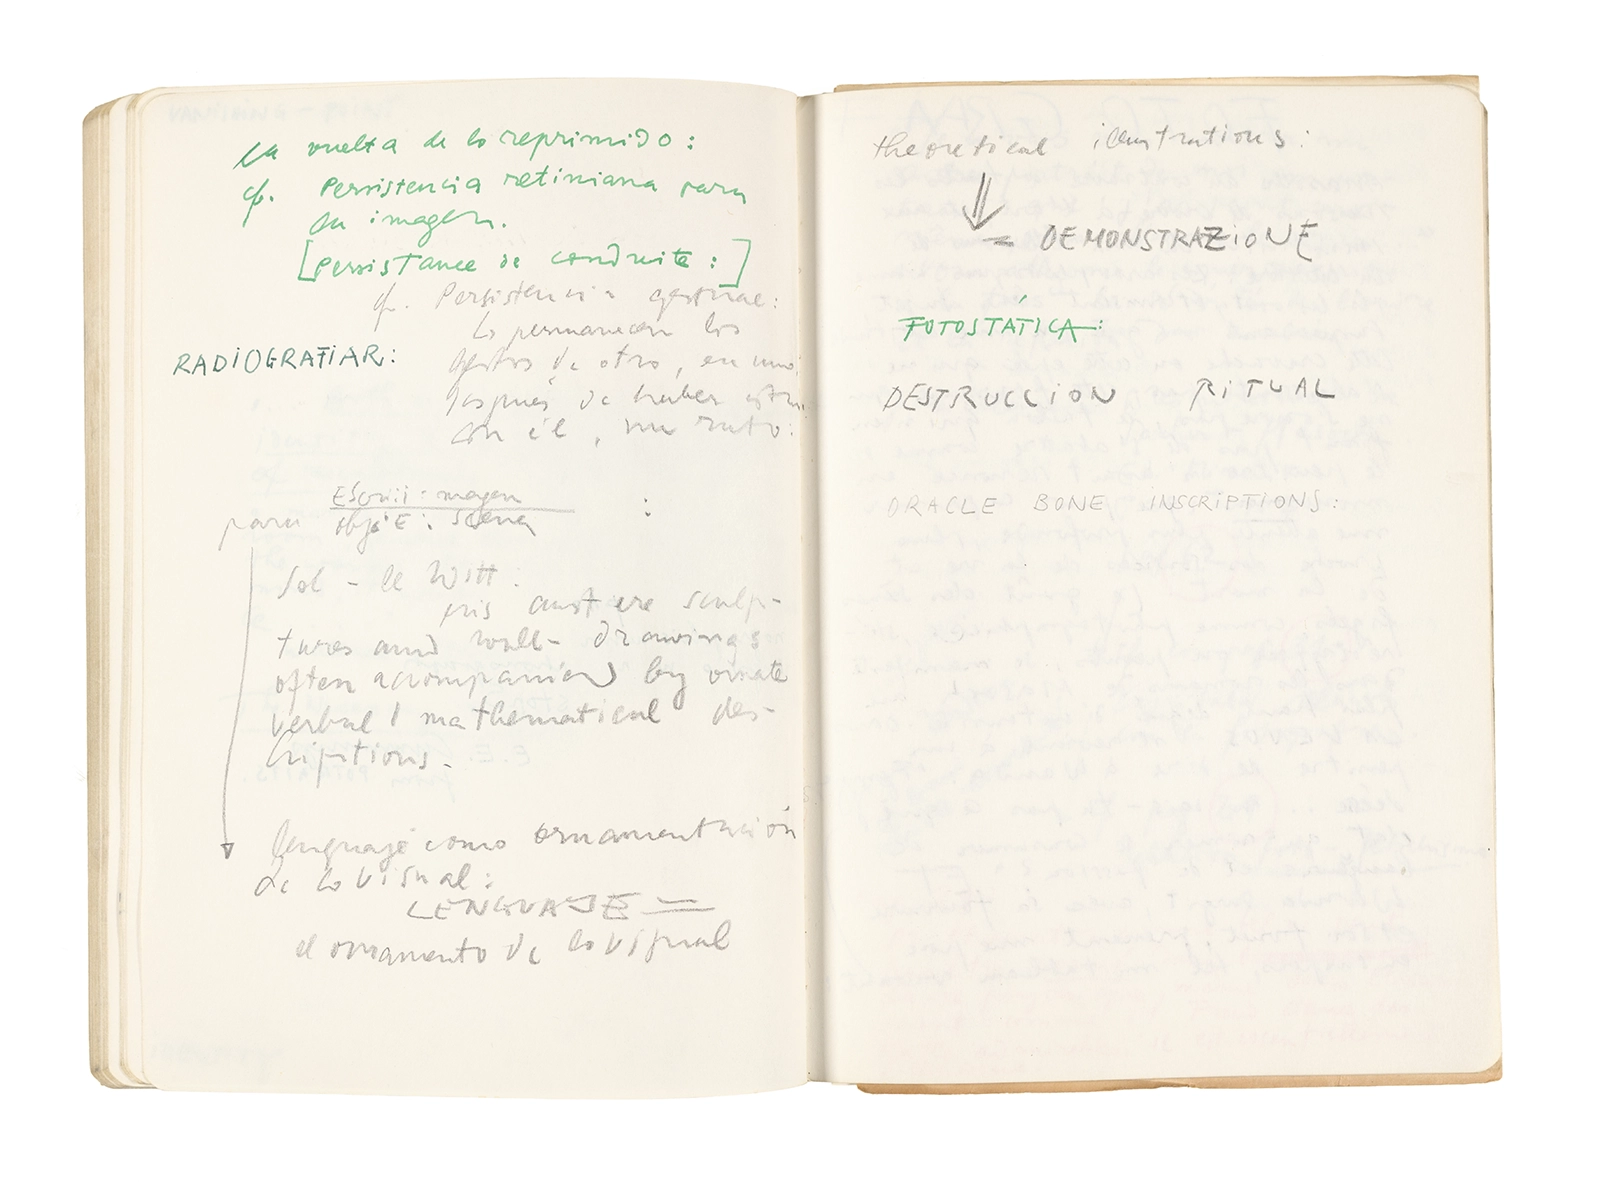 la vuelta de lo reprimido:
cf. Persistencia retiniana para
su imagen.
[Persistance de conduite:]
cf. Persistencia gestual:
Lo permanecen los
RADIOGRAFIAR: gestos de otro, en uno,
después de haber
con él, un rato:
magen :
para obje : scena
Sol - le Witt:
his austere sculp-
tures and wall-drawings
often accompanied by ornate
verbal / mathematical des-
criptions.
lenguaje como ornamentación
de lo visual:
LENGUAJE =
el ornamento de lo visual
theoretical illustrations:
⇓
= DEMONSTRAZIONE
FOTOSTÁTICA:
DESTRUCCION RITUAL
ORACLE BONE INSCRIPTIONS: